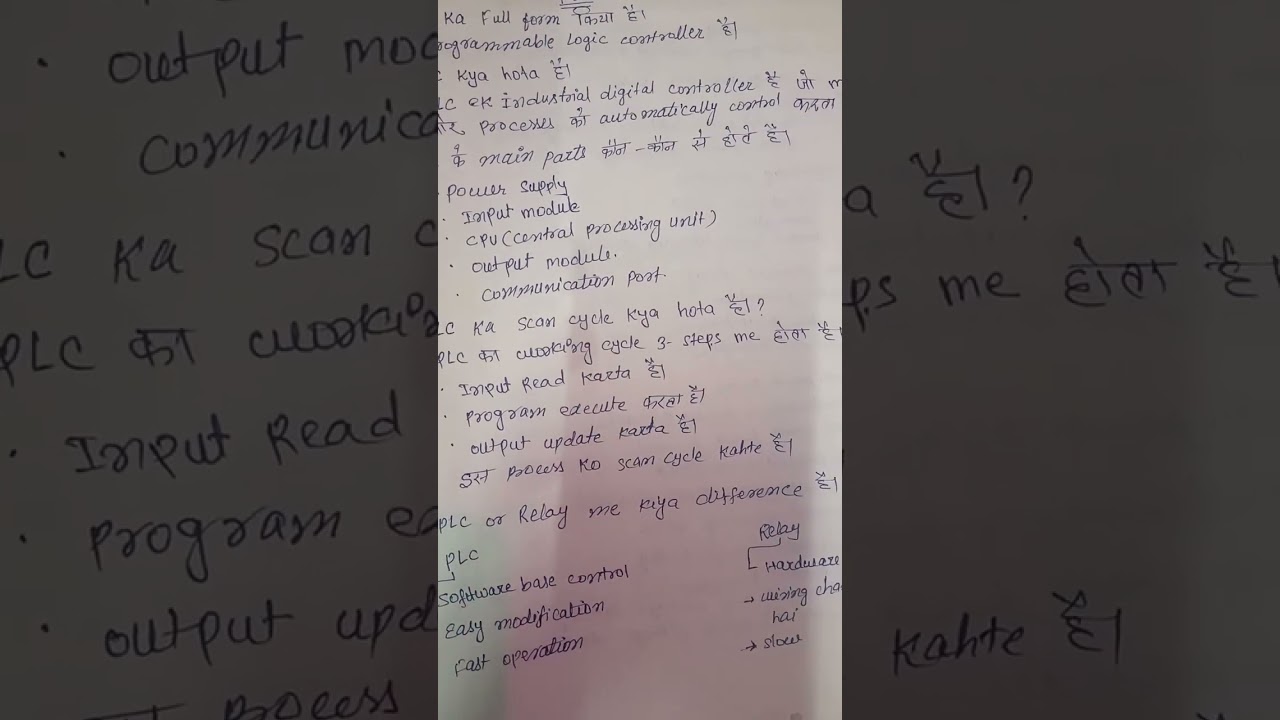 Ka Full form किया है।
rogrammable Logic controller है।
Kya hota है।
LC ek Industrial digital controller है जो m
processes को automatically control करता
के main parts कौन-कौन से होते है।
· Power Supply
· Input module
· CPU (central processing unit)
· output module.
· communication port.
LC Ka scan cycle Kya hota है।?
PLC का working cycle 3- steps me होता है।
· Input Read Karta है।
· program execute करता है।
· output update karta है।
इस process Ko scan cycle Kahte है।
PLC or Relay me kiya difference है।
PLC Relay
Software base control Hardware
Easy modification → wiring cha
hai
Fast operation → slow